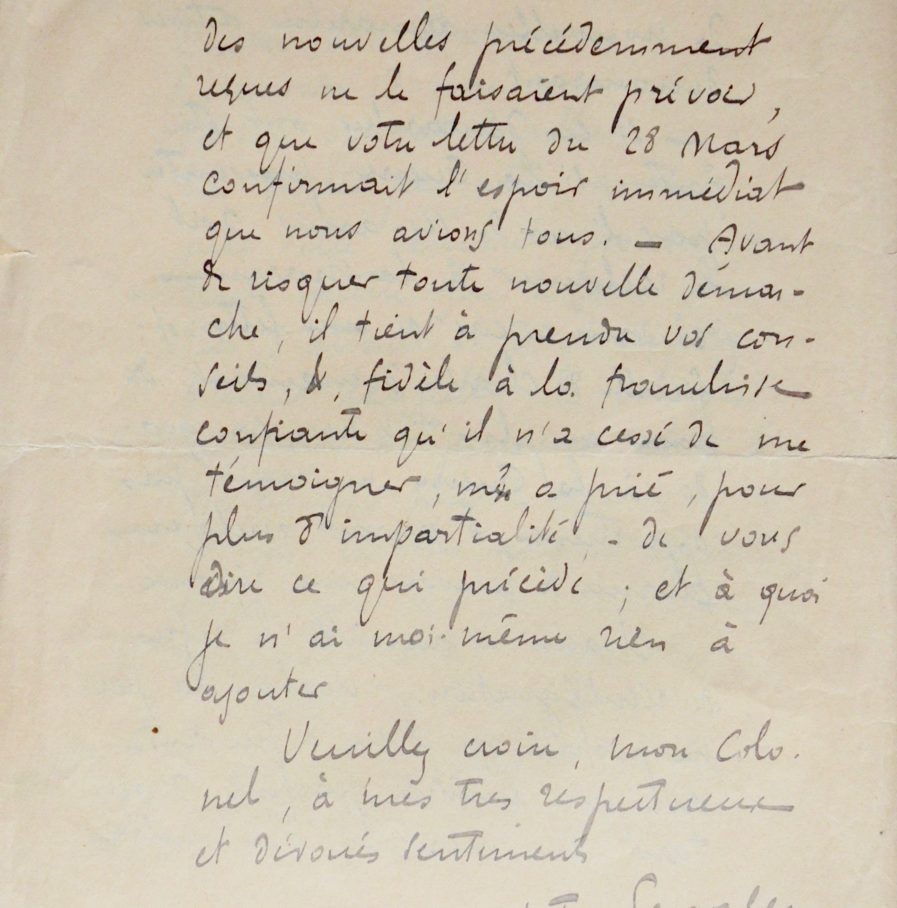 des nouvelles précédemment
reçues ne le faisaient prévoir,
et que votre lettre du 28 Mars
confirmait l'espoir immédiat
que nous avions tous. — Avant
de risquer toute nouvelle démar-
che, il tient à prendre vos con-
seils, &, fidèle à la franchise
confiante qu'il n'a cessé de me
témoigner, m'a prié, pour
plus d'impartialité, - de vous
dire ce qui précède ; et à quoi
je n'ai moi-même rien à
ajouter
Veuillez croire, mon Colo-
nel, à mes très respectueux
et dévoués sentiments